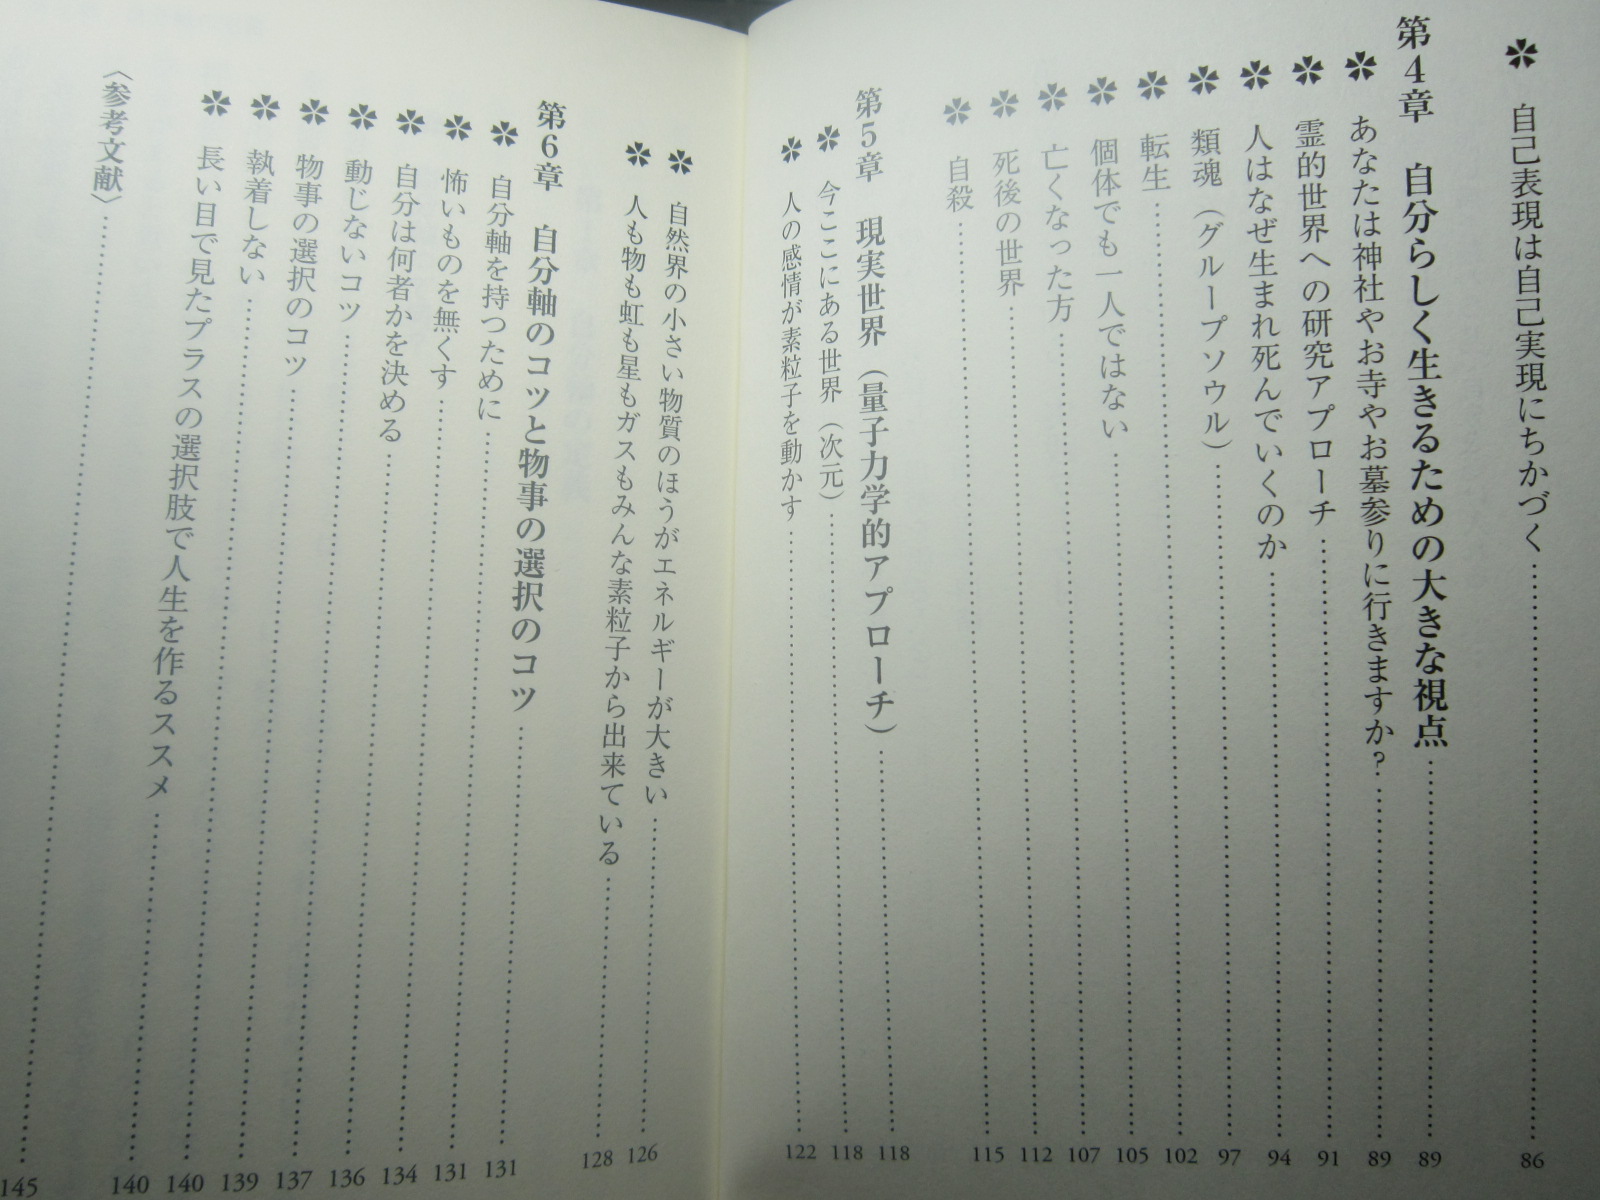 ✽ 自己表現は自己実現にちかづく……86
第4章 自分らしく生きるための大きな視点……89
✽ あなたは神社やお寺やお墓参りに行きますか?……89
✽ 霊的世界への研究アプローチ……91
✽ 人はなぜ生まれ死んでいくのか……94
✽ 類魂(グループソウル)……97
✽ 転生……102
✽ 個体でも一人ではない……105
✽ 亡くなった方……107
✽ 死後の世界……112
✽ 自殺……115
第5章 現実世界(量子力学的アプローチ)……118
✽ 今ここにある世界(次元)……118
✽ 人の感情が素粒子を動かす……122
✽ 自然界の小さい物質のほうがエネルギーが大きい……126
✽ 人も物も虹も星もガスもみんな素粒子から出来ている……128
第6章 自分軸のコツと物事の選択のコツ……131
✽ 自分軸を持つために……131
✽ 怖いものを無くす……134
✽ 自分は何者かを決める……136
✽ 動じないコツ……137
✽ 物事の選択のコツ……139
✽ 執着しない……140
✽ 長い目で見たプラスの選択肢で人生を作るススメ……140
〈参考文献〉……145